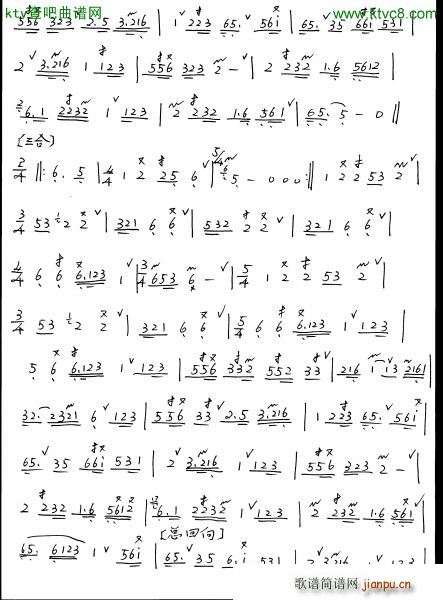 ktv酷吧曲谱网 www.ktvc8.com
556 323 2.5 3.216 | 1 223 65. 56i | 65. 35 66i 531 |
2 3.216 1 123 | 556 323 2 - | 2 232 1.6 5612 |
6.1 2232 1 123 | 2 232 1.6 561 | 65. 5 - 0 ||
[三合]
2/4 ||: 6. 5 | 4/4 1 2 25 6 | 5/4 5 - 0 0 0 :|| 1 2 2 53 2 |
3/4 53 2 2 | 321 6 6 | 532 2 2 | 321 6 6 |
4/4 6 6 6.123 1 | 3/4 653 6 - | 5/4 1 2 2 53 2 |
3/4 53 2 2 | 321 6 6 | 5/4 6 6 6.123 1 123 |
5 6 6.123 1 123 | 556 332 552 33 | 216 1 13 2161 |
32. 2321 6 123 | 556 33 2.5 3.216 | 1 223 65. 56i |
65. 35 66i 531 | 2 3.216 1 123 | 556 323 2 - |
2 232 1.6 5612 | 6.1 2232 1 123 | 2 232 1.6 561 |
[总回向]
65. 6123 1 56i | 65. 35 6.i 531 | 2 3.216 1 123 |
歌谱简谱网 jianpu.cn